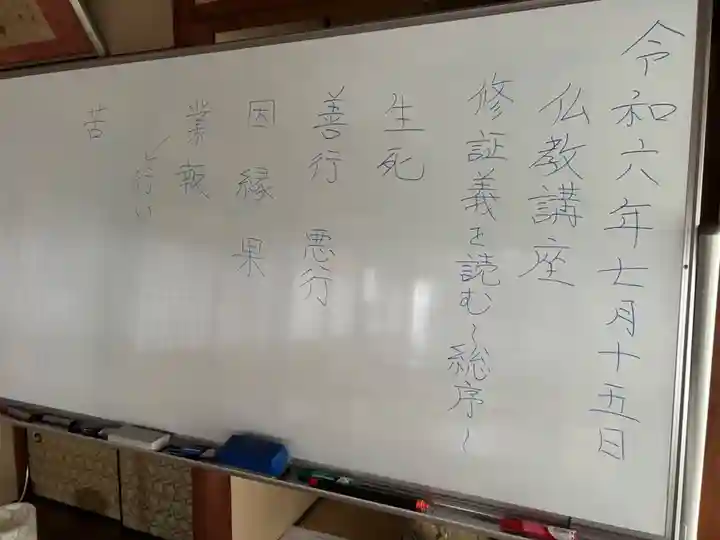 令和六年七月十五日
仏教講座
修証義を読む〜総序〜
生死
善行 悪行
因 縁 果
業報
行い
苦